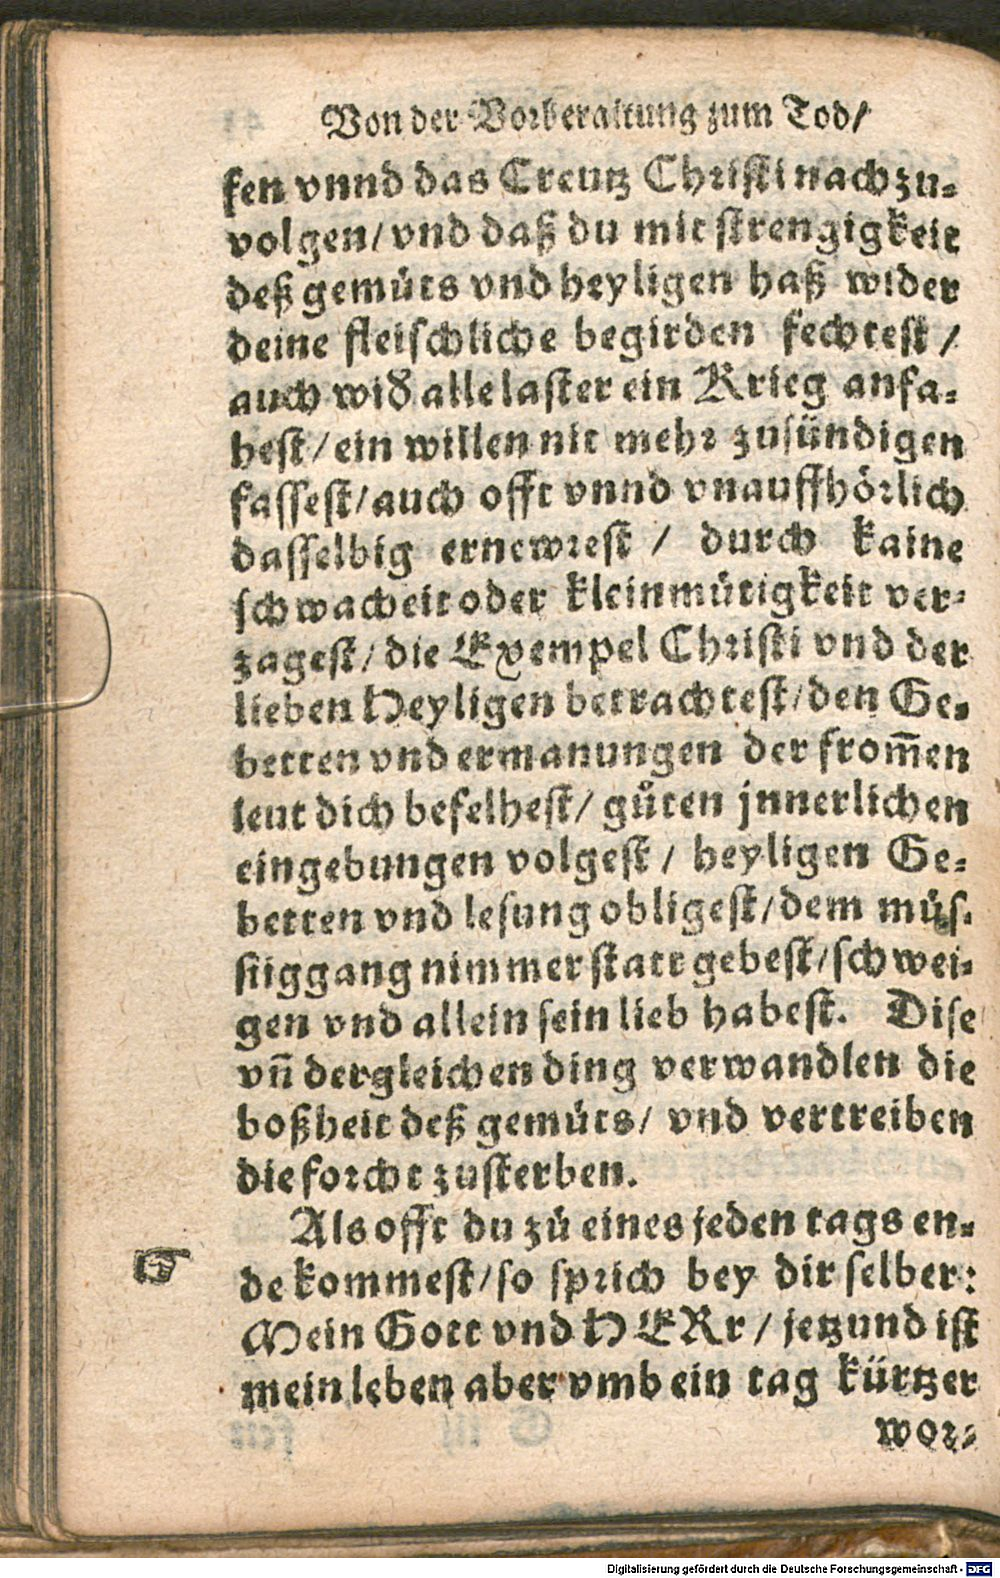 Von der Vorberaitung zum Tod/
fen vnnd das Creutz Christi nachzu-
volgen/vnd daß du mit strengigkeit
deß gemüts vnd heyligen haß wider
deine fleischliche begirden fechtest /
auch wid alle laster ein Krieg anfa-
hest/ein willen nit mehr zusündigen
fassest/auch offt vnnd vnauffhörlich
dasselbig ernewrest / durch kaine
schwacheit oder kleinmütigkeit ver-
zagest/die Exempel Christi vnd der
lieben Heyligen betrachtest/den Ge-
betten vnd ermanungen der from̃en
leut dich befelhest/ gůten jnnerlichen
eingebungen volgest / heyligen Ge-
betten vnd lesung obligest/dem müs-
siggang nimmer statt gebest/schwei-
gen vnd allein sein lieb habest. Dise
vn̄ dergleichen ding verwandlen die
boßheit deß gemüts/ vnd vertreiben
die forcht zusterben.
Als offt du zů eines jeden tags en-
☞ de kommest/so sprich bey dir selber:
Mein Gott vnd HERr / jetzund ist
mein leben aber vmb ein tag kürtzer
wor-
Digitalisierung gefördert durch die Deutsche Forschungsgemeinschaft - DFG